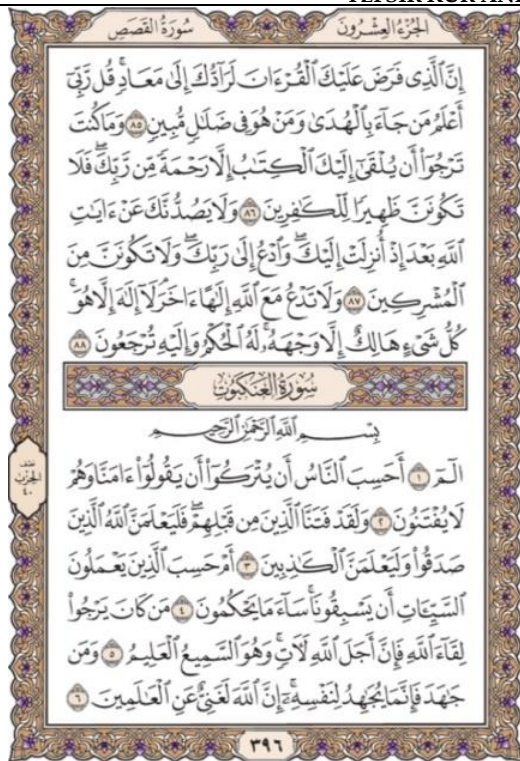 الجُزْءُ العِشْرُونَ
سُورَةُ القَصَصِ
إِنَّ ٱلَّذِى فَرَضَ عَلَيْكَ ٱلْقُرْءَانَ لَرَآدُّكَ إِلَىٰ مَعَادٍ ۚ قُل رَّبِّىٓ
أَعْلَمُ مَن جَآءَ بِٱلْهُدَىٰ وَمَنْ هُوَ فِى ضَلَٰلٍ مُّبِينٍ ٨٥ وَمَا كُنتَ
تَرْجُوٓا۟ أَن يُلْقَىٰٓ إِلَيْكَ ٱلْكِتَٰبُ إِلَّا رَحْمَةً مِّن رَّبِّكَ ۖ فَلَا
تَكُونَنَّ ظَهِيرًا لِّلْكَٰفِرِينَ ٨٦ وَلَا يَصُدُّنَّكَ عَنْ ءَايَٰتِ
ٱللَّهِ بَعْدَ إِذْ أُنزِلَتْ إِلَيْكَ ۖ وَٱدْعُ إِلَىٰ رَبِّكَ ۖ وَلَا تَكُونَنَّ مِنَ
ٱلْمُشْرِكِينَ ٨٧ وَلَا تَدْعُ مَعَ ٱللَّهِ إِلَٰهًا ءَاخَرَ ۘ لَآ إِلَٰهَ إِلَّا هُوَ ۚ
كُلُّ شَىْءٍ هَالِكٌ إِلَّا وَجْهَهُۥ ۚ لَهُ ٱلْحُكْمُ وَإِلَيْهِ تُرْجَعُونَ ٨٨
سُورَةُ العَنكَبُوتِ
بِسْمِ ٱللَّهِ ٱلرَّحْمَٰنِ ٱلرَّحِيمِ
الٓمٓ ١ أَحَسِبَ ٱلنَّاسُ أَن يُتْرَكُوٓا۟ أَن يَقُولُوٓا۟ ءَامَنَّا وَهُمْ
لَا يُفْتَنُونَ ٢ وَلَقَدْ فَتَنَّا ٱلَّذِينَ مِن قَبْلِهِمْ ۖ فَلَيَعْلَمَنَّ ٱللَّهُ ٱلَّذِينَ
صَدَقُوا۟ وَلَيَعْلَمَنَّ ٱلْكَٰذِبِينَ ٣ أَمْ حَسِبَ ٱلَّذِينَ يَعْمَلُونَ
ٱلسَّيِّـَٔاتِ أَن يَسْبِقُونَا ۚ سَآءَ مَا يَحْكُمُونَ ٤ مَن كَانَ يَرْجُوا۟
لِقَآءَ ٱللَّهِ فَإِنَّ أَجَلَ ٱللَّهِ لَءَاتٍ ۚ وَهُوَ ٱلسَّمِيعُ ٱلْعَلِيمُ ٥ وَمَن
جَٰهَدَ فَإِنَّمَا يُجَٰهِدُ لِنَفْسِهِۦٓ ۚ إِنَّ ٱللَّهَ لَغَنِىٌّ عَنِ ٱلْعَٰلَمِينَ ٦
نصف
الحزب
٤٠
٣٩٦